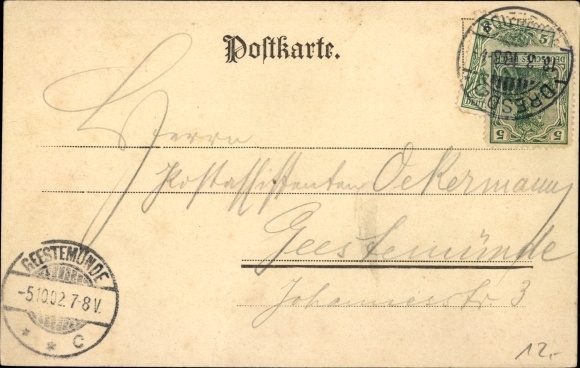 Postkarte.
Herrn
Postassistenten Oekermann
Geestemünde
Johannesstr. 3
GEESTEMÜNDE
-5.10.02.7-8V.
* * C
DRESD
5
5
12.-